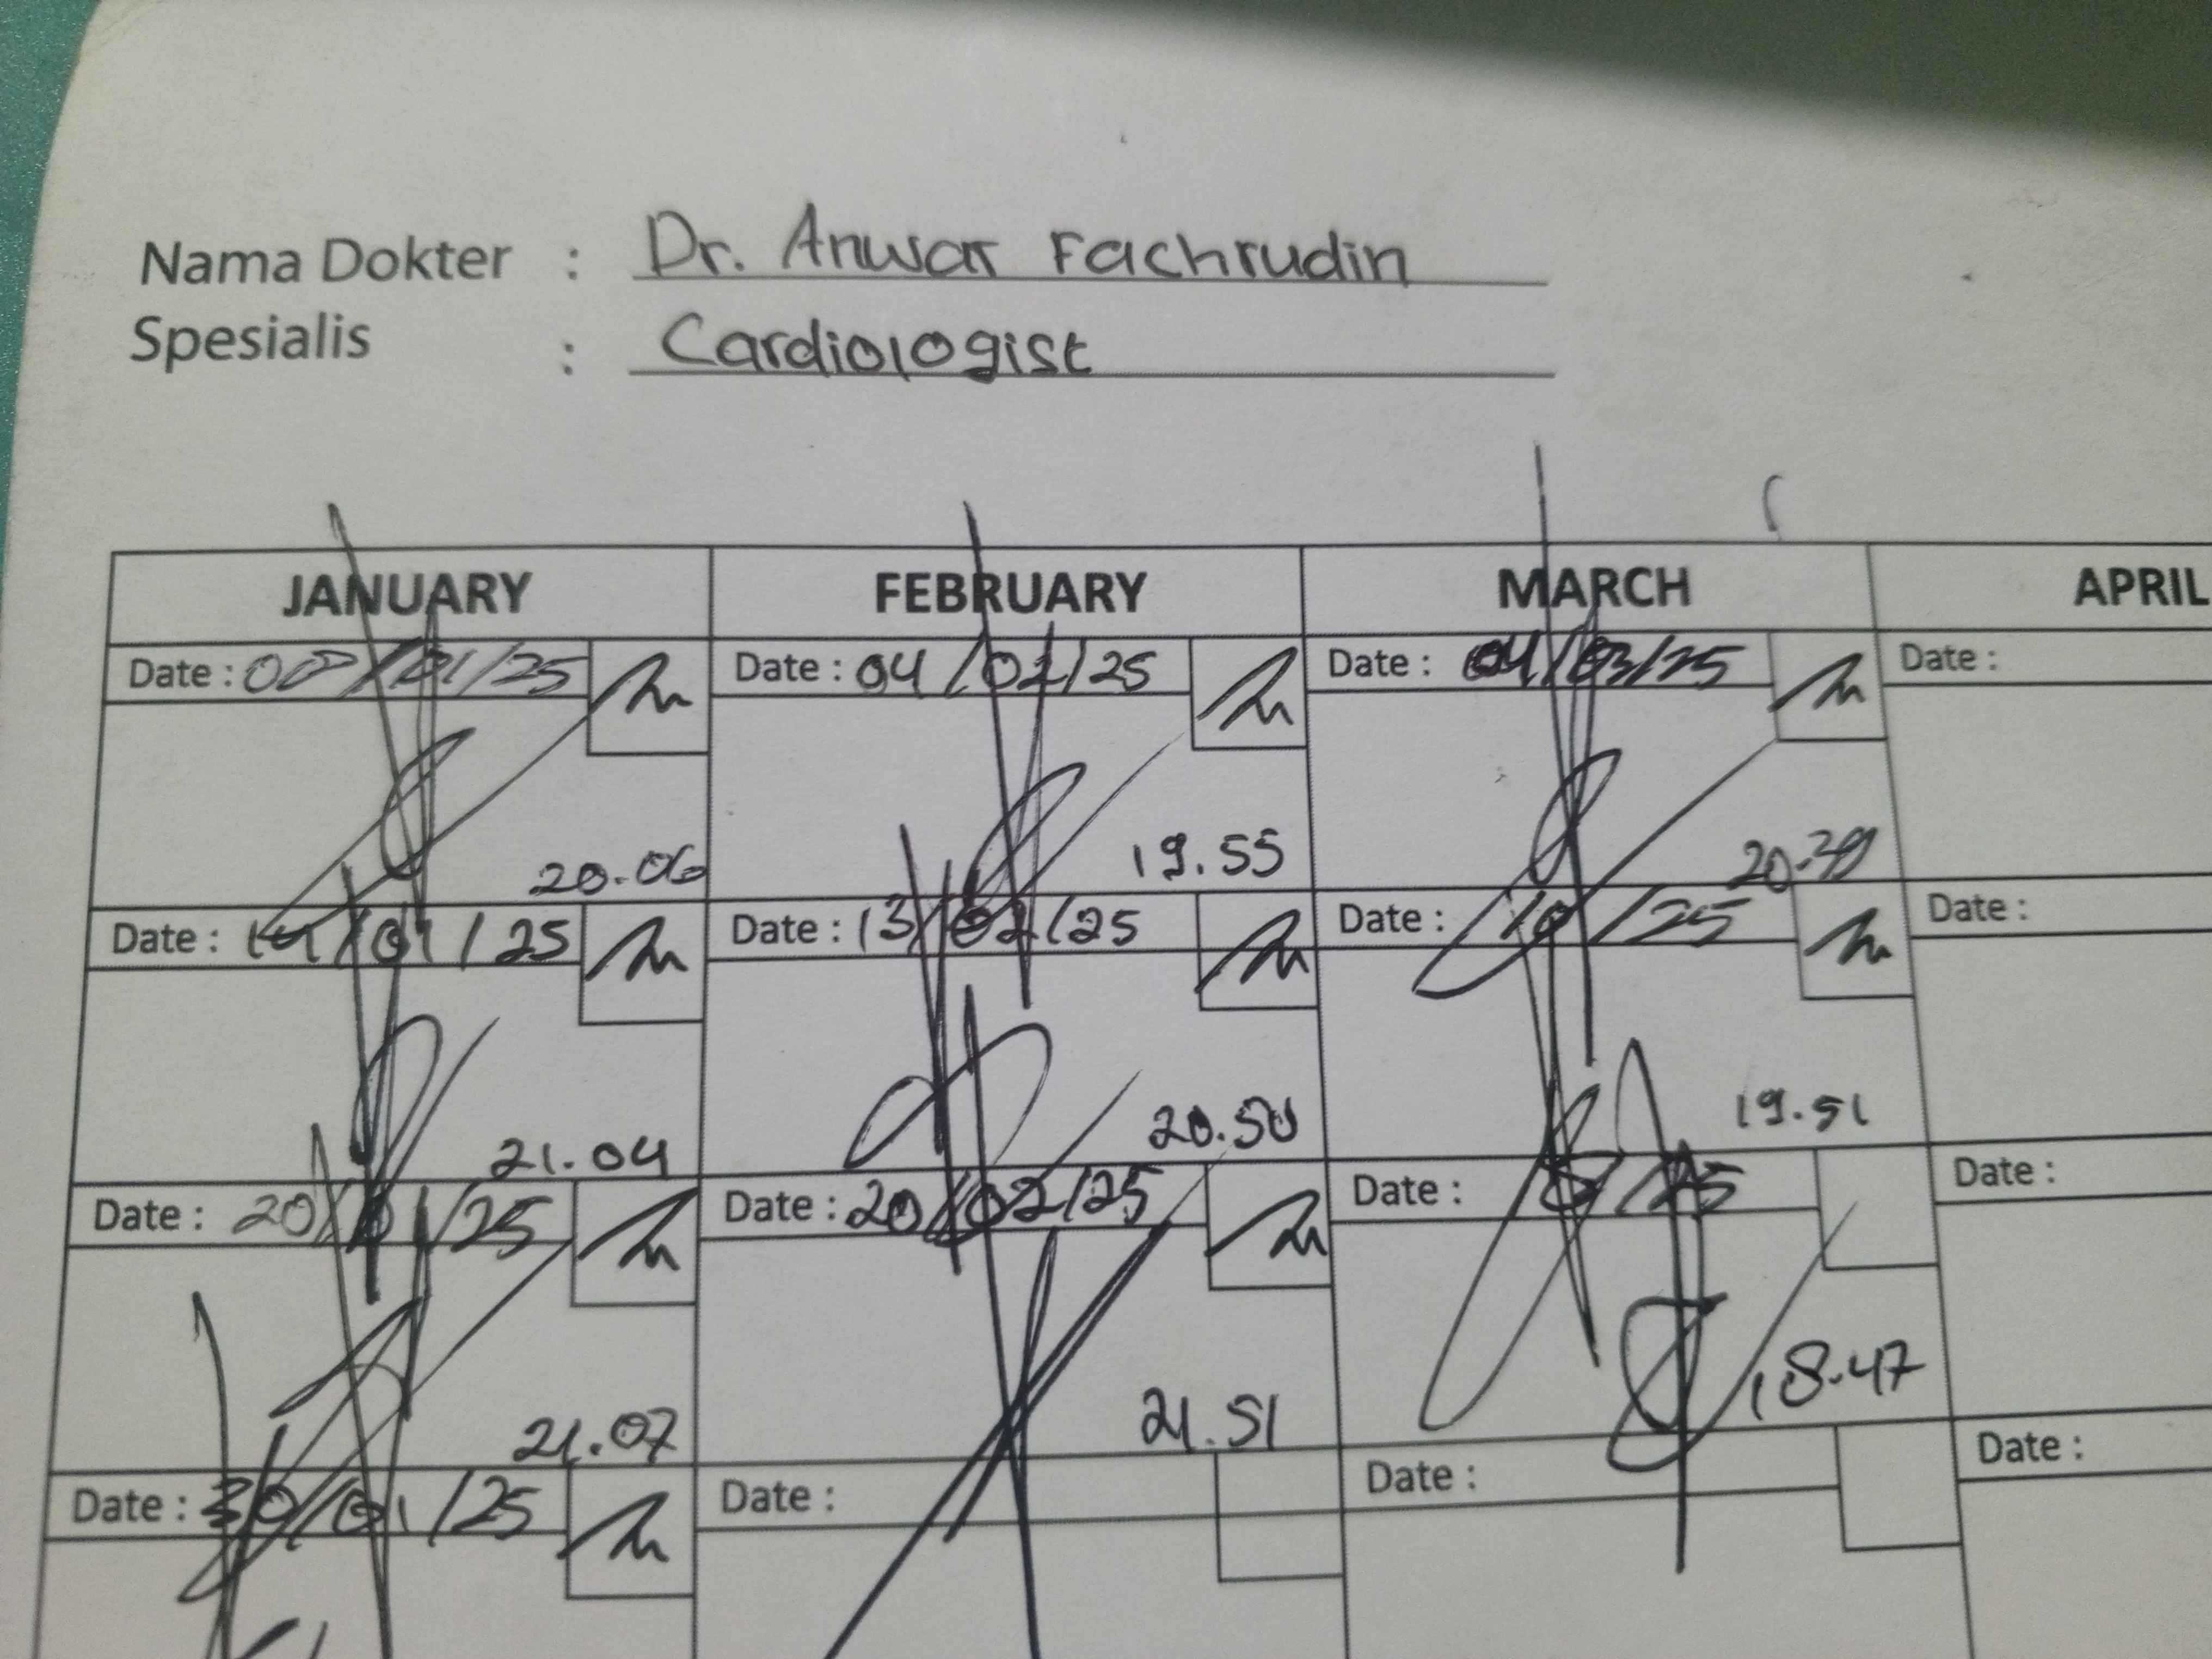 Nama Dokter : Dr. Anwar Fachrudin
Spesialis : Cardiologist
JANUARY FEBRUARY MARCH APRIL
Date : /01/25 Date : 04/02/25 Date : 04/03/25 Date :
20.06 19.55 20.39
Date : 14/01/25 Date : 13/02/25 Date : 10/25 Date :
21.04 20.50 19.51
Date : 20/01/25 Date : 20/02/25 Date : /25 Date :
21.07 21.51 18.47
Date : 30/01/25 Date : Date : Date :